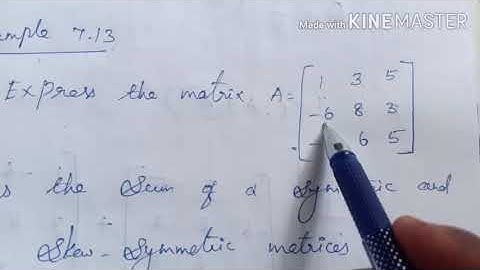 Made with KINEMASTER
ample 7.13
Express the matrix A = [ 1 3 5
-6 8 3
6 5 ]
s the Sum of a Symmetric and
Skew-Symmetric matrices